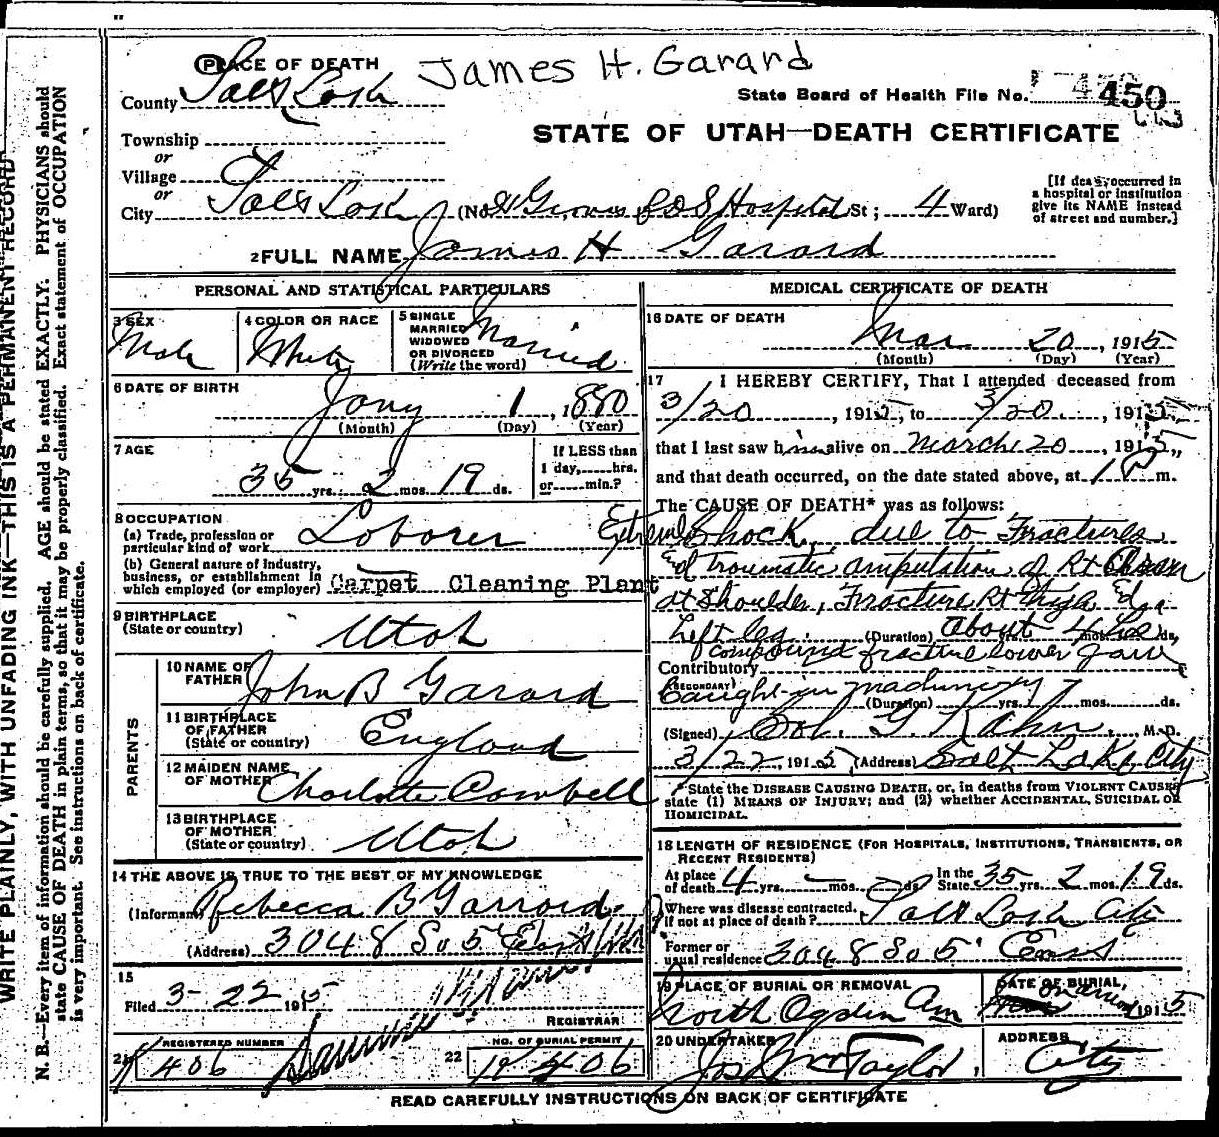 WRITE PLAINLY, WITH UNFADING INK—THIS IS A PERMANENT RECORD
N. B.—Every item of information should be carefully supplied. AGE should be stated EXACTLY. PHYSICIANS should
state CAUSE OF DEATH in plain terms, so that it may be properly classified. Exact statement of OCCUPATION
is very important. See instructions on back of certificate.
PLACE OF DEATH James H. Garard
County Salt Lake State Board of Health File No. 450
STATE OF UTAH—DEATH CERTIFICATE
Township
or
Village
or
City Salt Lake (No. L D S Hospital St; 4 Ward)
[If death occurred in
a hospital or institution
give its NAME instead
of street and number.]
2 FULL NAME James H Garard
PERSONAL AND STATISTICAL PARTICULARS
3 SEX
Male
4 COLOR OR RACE
White
5 SINGLE
MARRIED
WIDOWED
OR DIVORCED
(Write the word)
Married
6 DATE OF BIRTH
Jany 1, 1880
(Month) (Day) (Year)
7 AGE
35 yrs. 2 mos. 19 ds.
If LESS than
1 day, hrs.
or min.?
8 OCCUPATION
(a) Trade, profession or
particular kind of work Laborer
(b) General nature of Industry,
business, or establishment in
which employed (or employer) Carpet Cleaning Plant
9 BIRTHPLACE
(State or country) Utah
PARENTS
10 NAME OF
FATHER John B Garard
11 BIRTHPLACE
OF FATHER
(State or country) England
12 MAIDEN NAME
OF MOTHER Charlotte Cambell
13 BIRTHPLACE
OF MOTHER
(State or country) Utah
14 THE ABOVE IS TRUE TO THE BEST OF MY KNOWLEDGE
(Informant) Rebecca B Garrard
(Address) 3048 So 5 East
15
Filed 3-22 1915
REGISTRAR
21 REGISTERED NUMBER
406
22 NO. OF BURIAL PERMIT
406
MEDICAL CERTIFICATE OF DEATH
16 DATE OF DEATH
Mar 20, 1915
(Month) (Day) (Year)
17 I HEREBY CERTIFY, That I attended deceased from
3/20, 1915, to 3/20, 1915
that I last saw him alive on March 20, 1915,
and that death occurred, on the date stated above, at 1 P m.
The CAUSE OF DEATH* was as follows:
Extreme Shock due to Fractures
& traumatic amputation of Rt arm
at Shoulder, Fracture Rt thigh &
Left leg. (Duration) About 4 mos. ds.
compound fracture lower jaw
Contributory
(SECONDARY)
Caught in machinery
(Duration) yrs. mos. ds.
(Signed) Sol. G. Kahn, M. D.
3/22, 1915 (Address) Salt Lake City
*State the DISEASE CAUSING DEATH, or, in deaths from VIOLENT CAUSES
state (1) MEANS OF INJURY; and (2) whether ACCIDENTAL, SUICIDAL OR
HOMICIDAL.
18 LENGTH OF RESIDENCE (FOR HOSPITALS, INSTITUTIONS, TRANSIENTS, OR
RECENT RESIDENTS)
At place
of death 4 yrs. - mos. ds. In the State 35 yrs. 2 mos. 19 ds.
Where was disease contracted,
if not at place of death? Salt Lake City
Former or
usual residence 3048 So 5 East
19 PLACE OF BURIAL OR REMOVAL
North Ogden
DATE OF BURIAL,
1915
20 UNDERTAKER
Jos Wm Taylor
ADDRESS
City
READ CAREFULLY INSTRUCTIONS ON BACK OF CERTIFICATE